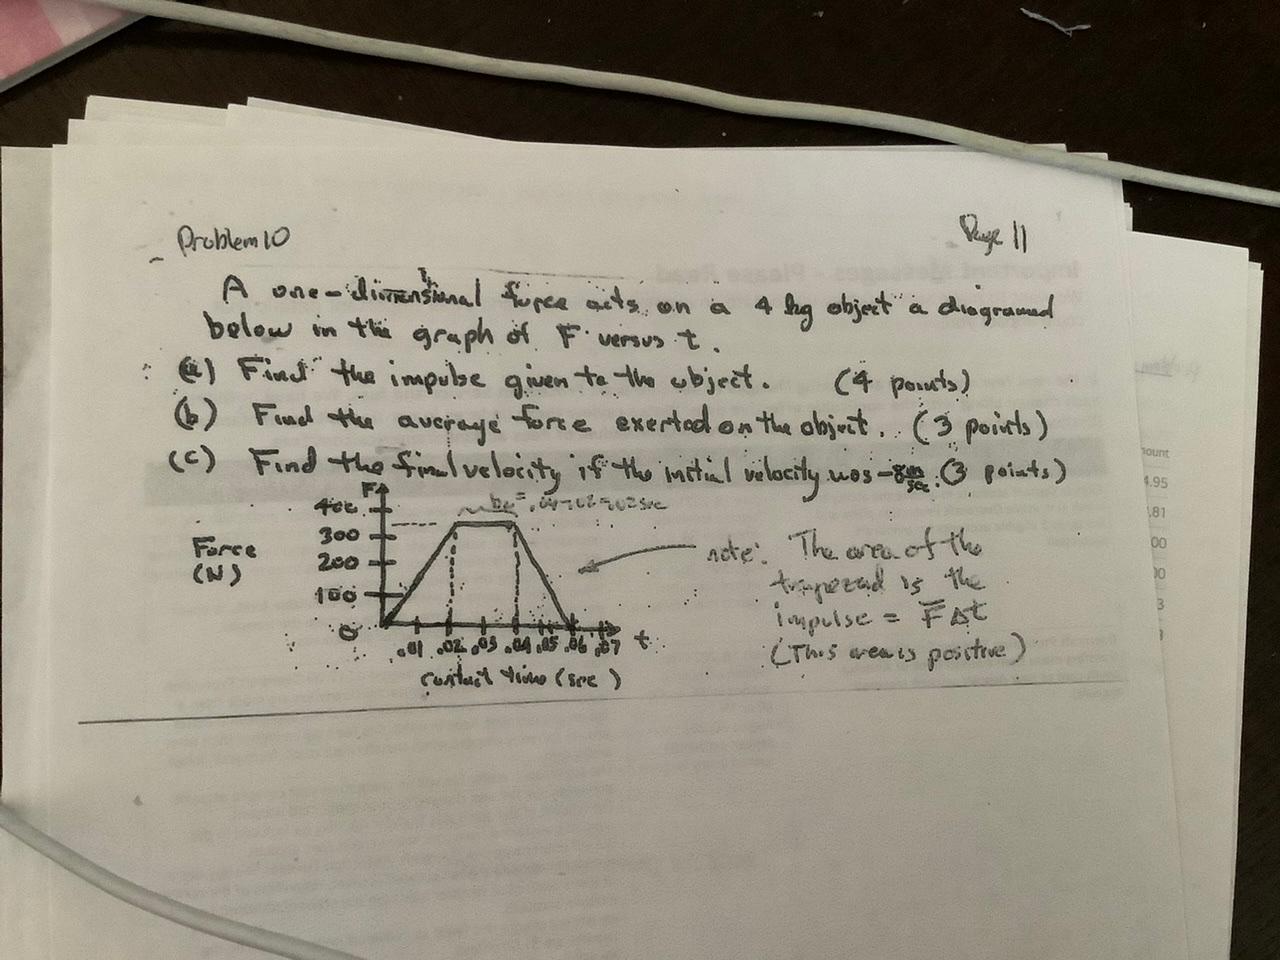 Problem 10
Page 11
A one-dimensional force acts on a 4 kg object a diagramed
below in the graph of F versus t.
(a) Find the impulse given to the object. (4 points)
(b) Find the average force exerted on the object. (3 points)
(c) Find the final velocity if the initial velocity was -8 m/sec. (3 points)
F
400
300
200
100
0
Force
(N)
.01 .02 .03 .04 .05 .06 .07 t
contact time (sec)
note: The area of the
trapezoid is the
impulse = F̅Δt
(This area is positive)